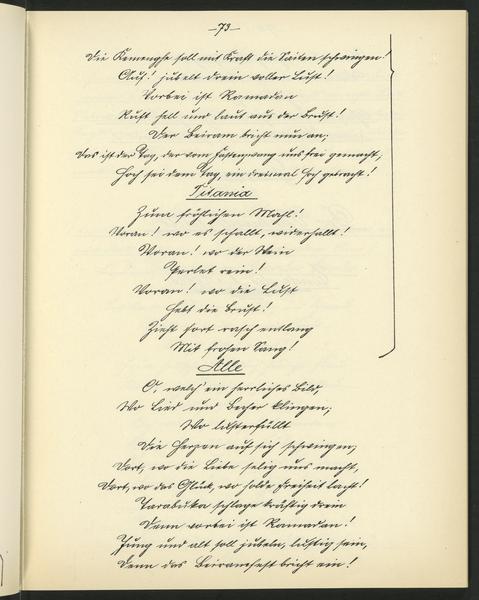 —73—
Die Kemengse soll mit Kraft die Saiten schwingen!
Auf! jubelt drein voller Lust!
Vorbei ist Ramadan
Ruft hell und laut aus der Brust!
Der Beiram bricht nun an;
Das ist der Tag, der vom Fastenzwang uns frei gemacht,
Hoch sei dem Tag, ein dreimal Hoch gebracht!
Titania
Zum fröhlichen Mahl!
Voran! wo es schallt, widerhallt!
Voran! wo der Wein
Perlet rein!
Voran! wo die Lust
Hebt die Brust!
Zieht fort rasch entlang
Mit frohen Sang!
Alle
O, welch' ein herrliches Bild,
Wo Lied und Becher klingen;
Wo lusterfüllt
Die Herzen auf sich schwingen;
Dort, wo die Liebe selig uns macht,
Dort, wo das Glück, wo holde Freiheit lacht!
Tarabuka schlage kräftig drein
Denn vorbei ist Ramadan!
Jung und alt soll jubeln, lustig sein,
Denn das Beiramfest bricht ein!